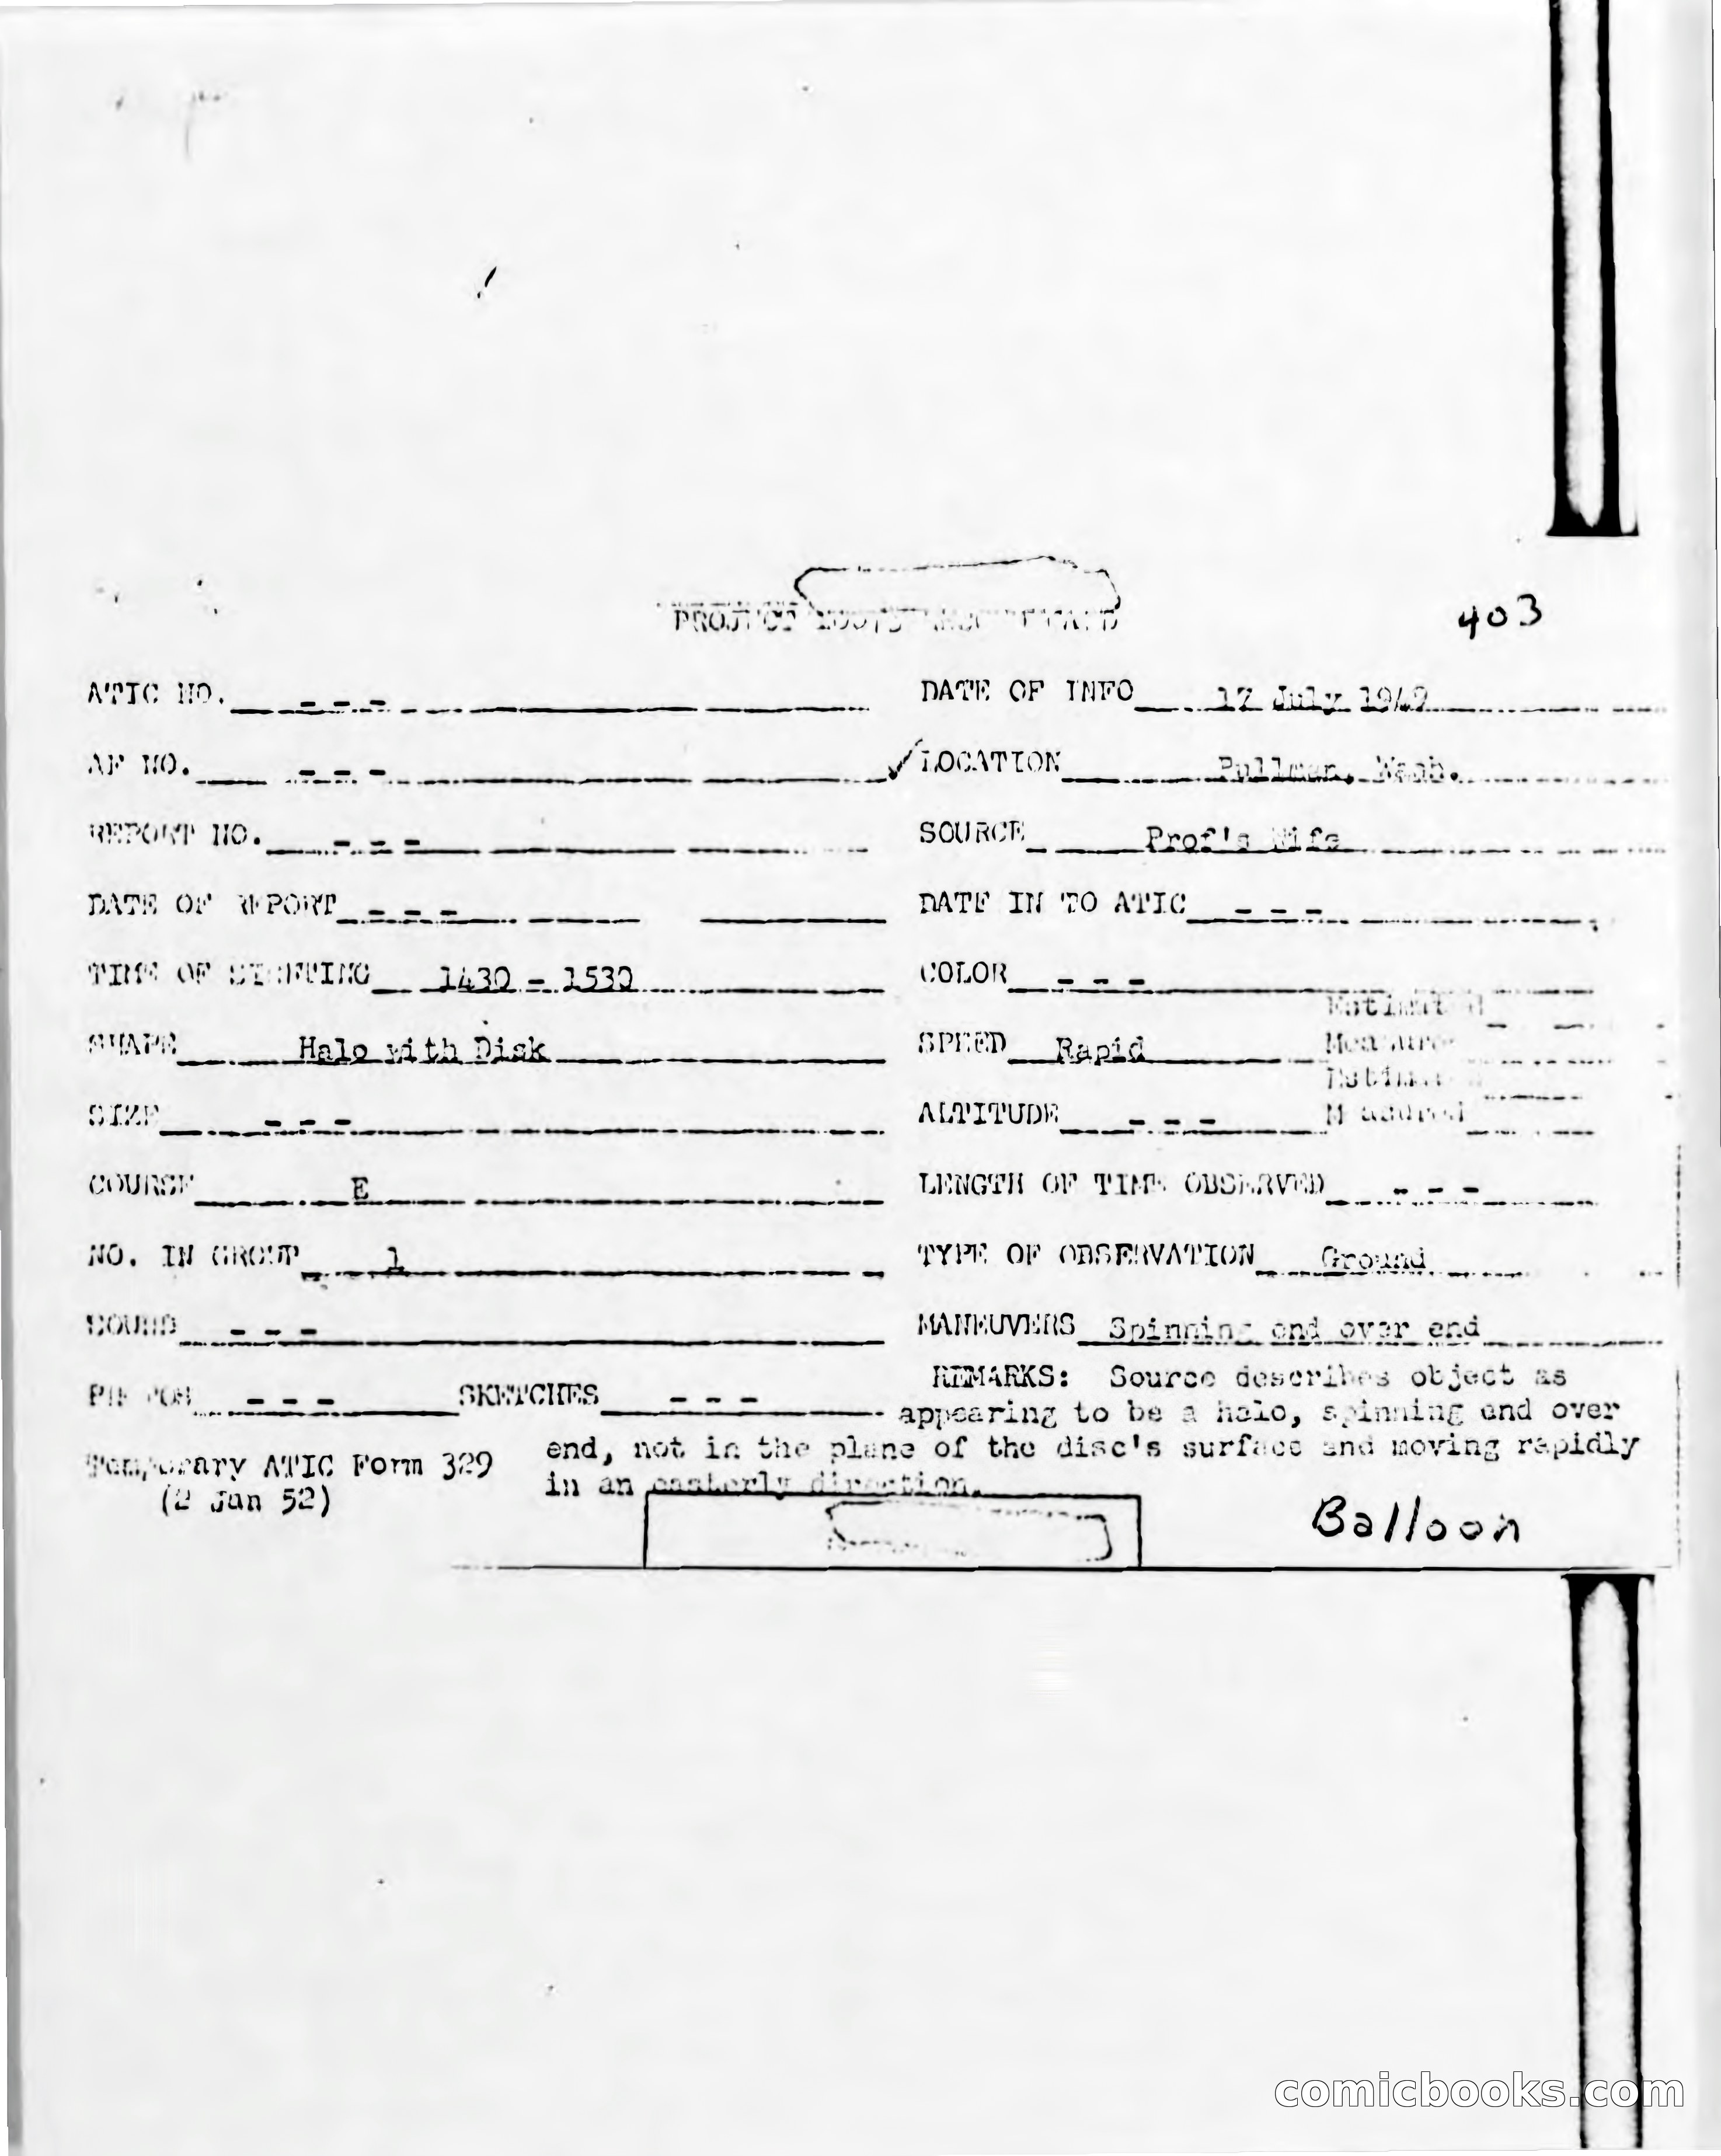 PROJECT
403
ATIC NO. - - - DATE OF INFO 17 July 1949
AF NO. - - - LOCATION Pullman, Wash.
REPORT NO. - - - SOURCE Prof's Wife
DATE OF REPORT - - - DATE IN TO ATIC - - -
TIME OF SIGHTING 1430 - 1530 COLOR - - -
Estimated
SHAPE Halo with Disk SPEED Rapid Measured
Estimated
SIZE - - - ALTITUDE - - - Measured
COURSE E LENGTH OF TIME OBSERVED - - -
NO. IN GROUP 1 TYPE OF OBSERVATION Ground
SOUND - - - MANEUVERS Spinning end over end
REMARKS: Source describes object as
SKETCHES - - - appearing to be a halo, spinning end over
Temporary ATIC Form 329 end, not in the plane of the disc's surface and moving rapidly
(2 Jan 52) in an easterly direction.
Balloon
comicbooks.com